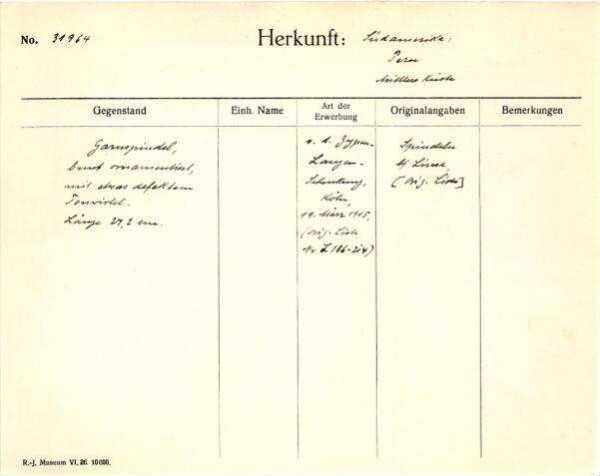 No. 31964
Herkunft: Südamerika:
Peru
Mittlere Küste
Gegenstand
Einh. Name
Art der Erwerbung
Originalangaben
Bemerkungen
Garnspindel,
bunt ornamentiert,
mit etwas defektem
Tonwirtel.
Länge 27,2 cm.
v. d. Zypen-
Langen-
Schenkung,
Köln,
19. März 1915,
(Orig. Liste
Nr L 186-214)
Spindeln
b/ Lima
[Orig. Liste]
R.-J. Museum VI. 26. 10000.